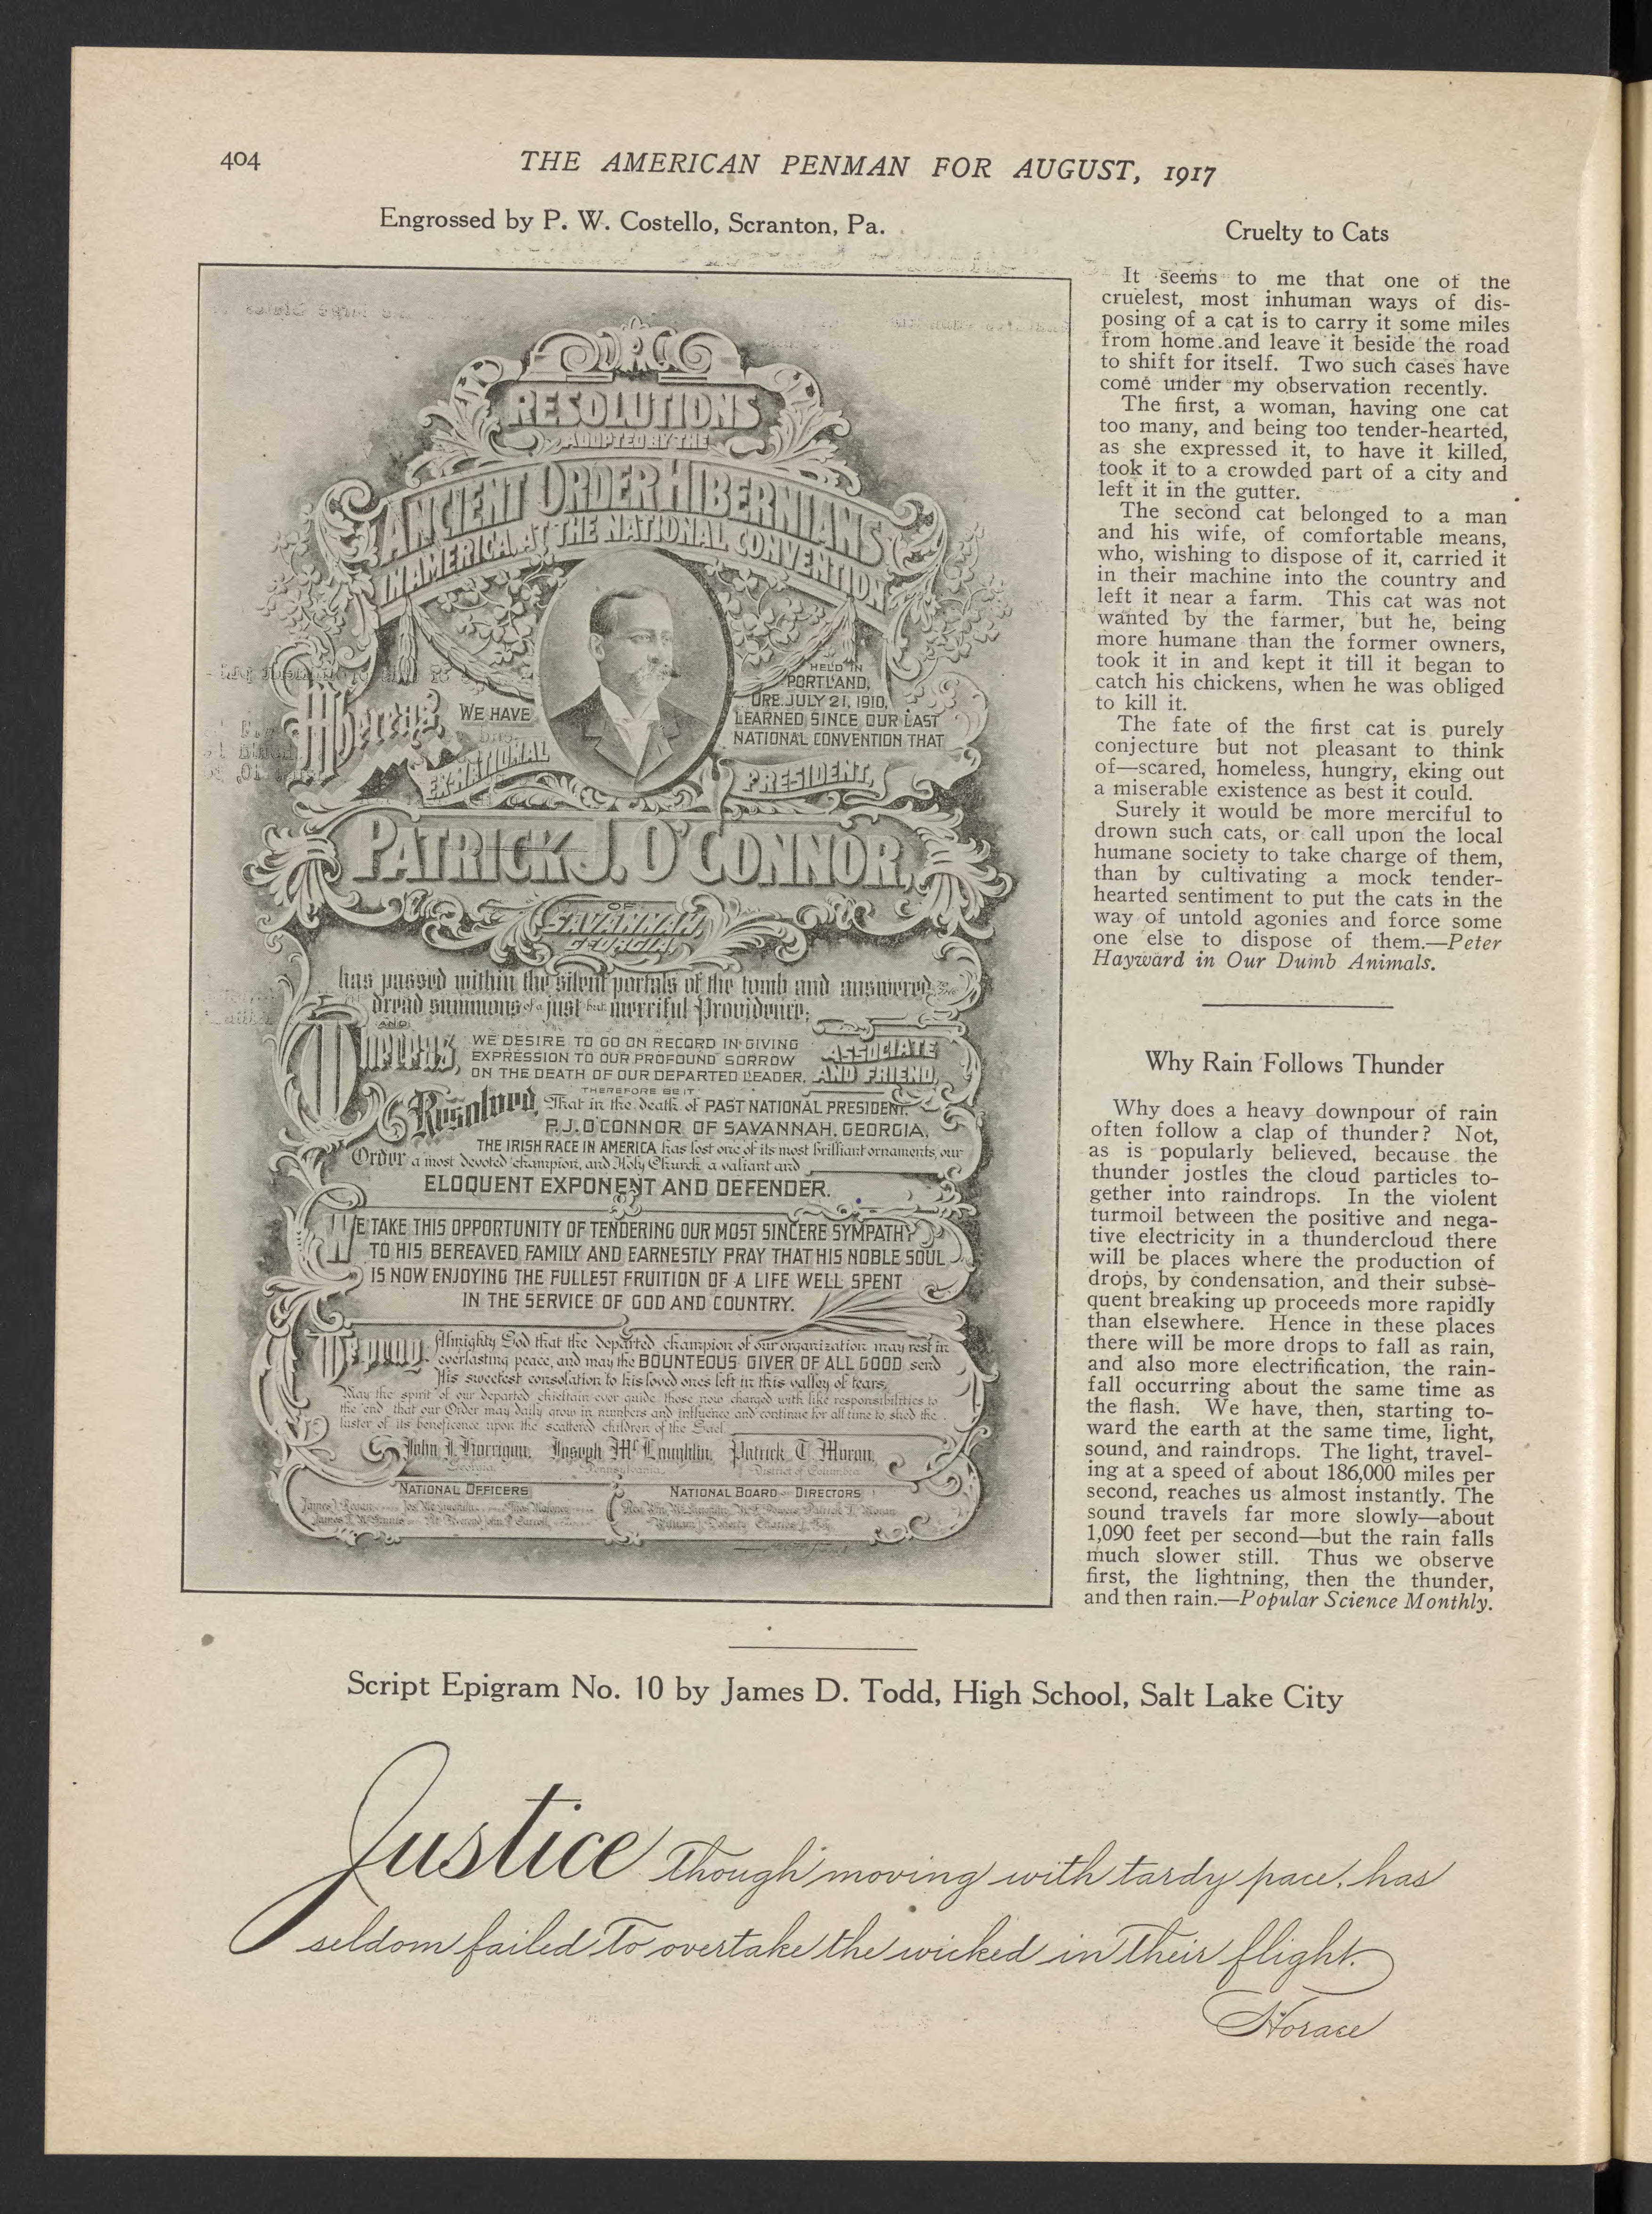 404
THE AMERICAN PENMAN FOR AUGUST, 1917
Engrossed by P. W. Costello, Scranton, Pa.
RESOLUTIONS
ADOPTED BY THE
ANCIENT ORDER HIBERNIANS
IN AMERICA, AT THE NATIONAL CONVENTION
HELD IN
PORTLAND,
ORE. JULY 21, 1910,
Whereas, WE HAVE
LEARNED SINCE OUR LAST
NATIONAL CONVENTION THAT
EX-NATIONAL
PRESIDENT,
PATRICK J. O'CONNOR,
OF
SAVANNAH,
GEORGIA,
has passed within the silent portals of the tomb and answered the
dread summons of a just but merciful Providence;
AND
Whereas, WE DESIRE TO GO ON RECORD IN GIVING
EXPRESSION TO OUR PROFOUND SORROW
ON THE DEATH OF OUR DEPARTED LEADER,
ASSOCIATE
AND FRIEND,
THEREFORE BE IT
Resolved, That in the death of PAST NATIONAL PRESIDENT.
P. J. O'CONNOR, OF SAVANNAH, GEORGIA,
THE IRISH RACE IN AMERICA has lost one of its most brilliant ornaments, our
Order a most devoted champion, and Holy Church, a valiant and
ELOQUENT EXPONENT AND DEFENDER.
WE TAKE THIS OPPORTUNITY OF TENDERING OUR MOST SINCERE SYMPATHY
TO HIS BEREAVED FAMILY AND EARNESTLY PRAY THAT HIS NOBLE SOUL
IS NOW ENJOYING THE FULLEST FRUITION OF A LIFE WELL SPENT
IN THE SERVICE OF GOD AND COUNTRY.
We pray Almighty God that the departed champion of our organization may rest in
everlasting peace, and may the BOUNTEOUS GIVER OF ALL GOOD send
His sweetest consolation to his loved ones left in this valley of tears,
May the spirit of our departed chieftain ever guide those now charged with like responsibilities to
the end that our Order may daily grow in numbers and influence and continue for all time to shed the
luster of its beneficence upon the scattered children of the Gael.
John J. Horrigan, Joseph McLaughlin, Patrick T. Moran,
Georgia Pennsylvania District of Columbia
NATIONAL OFFICERS
NATIONAL BOARD DIRECTORS
Cruelty to Cats
It seems to me that one of the
cruelest, most inhuman ways of dis-
posing of a cat is to carry it some miles
from home and leave it beside the road
to shift for itself. Two such cases have
come under my observation recently.
The first, a woman, having one cat
too many, and being too tender-hearted,
as she expressed it, to have it killed,
took it to a crowded part of a city and
left it in the gutter.
The second cat belonged to a man
and his wife, of comfortable means,
who, wishing to dispose of it, carried it
in their machine into the country and
left it near a farm. This cat was not
wanted by the farmer, but he, being
more humane than the former owners,
took it in and kept it till it began to
catch his chickens, when he was obliged
to kill it.
The fate of the first cat is purely
conjecture but not pleasant to think
of—scared, homeless, hungry, eking out
a miserable existence as best it could.
Surely it would be more merciful to
drown such cats, or call upon the local
humane society to take charge of them,
than by cultivating a mock tender-
hearted sentiment to put the cats in the
way of untold agonies and force some
one else to dispose of them.—Peter
Hayward in Our Dumb Animals.
Why Rain Follows Thunder
Why does a heavy downpour of rain
often follow a clap of thunder? Not,
as is popularly believed, because the
thunder jostles the cloud particles to-
gether into raindrops. In the violent
turmoil between the positive and nega-
tive electricity in a thundercloud there
will be places where the production of
drops, by condensation, and their subse-
quent breaking up proceeds more rapidly
than elsewhere. Hence in these places
there will be more drops to fall as rain,
and also more electrification, the rain-
fall occurring about the same time as
the flash. We have, then, starting to-
ward the earth at the same time, light,
sound, and raindrops. The light, travel-
ing at a speed of about 186,000 miles per
second, reaches us almost instantly. The
sound travels far more slowly—about
1,090 feet per second—but the rain falls
much slower still. Thus we observe
first, the lightning, then the thunder,
and then rain.—Popular Science Monthly.
Script Epigram No. 10 by James D. Todd, High School, Salt Lake City
Justice though moving with tardy pace, has
seldom failed to overtake the wicked in their flight.
Horace